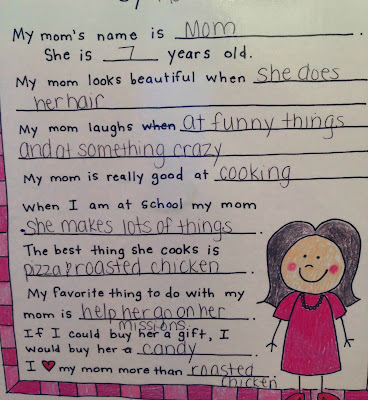 My mom's name is Mom.
She is 7 years old.
My mom looks beautiful when she does
her hair
My mom laughs when at funny things
and at something crazy
My mom is really good at cooking
When I am at school my mom
she makes lots of things.
The best thing she cooks is
pizza & roasted chicken.
My favorite thing to do with my
mom is help her go on her
missions.
If I could buy her a gift, I
would buy her a candy.
I ♥ my mom more than roasted
chicken